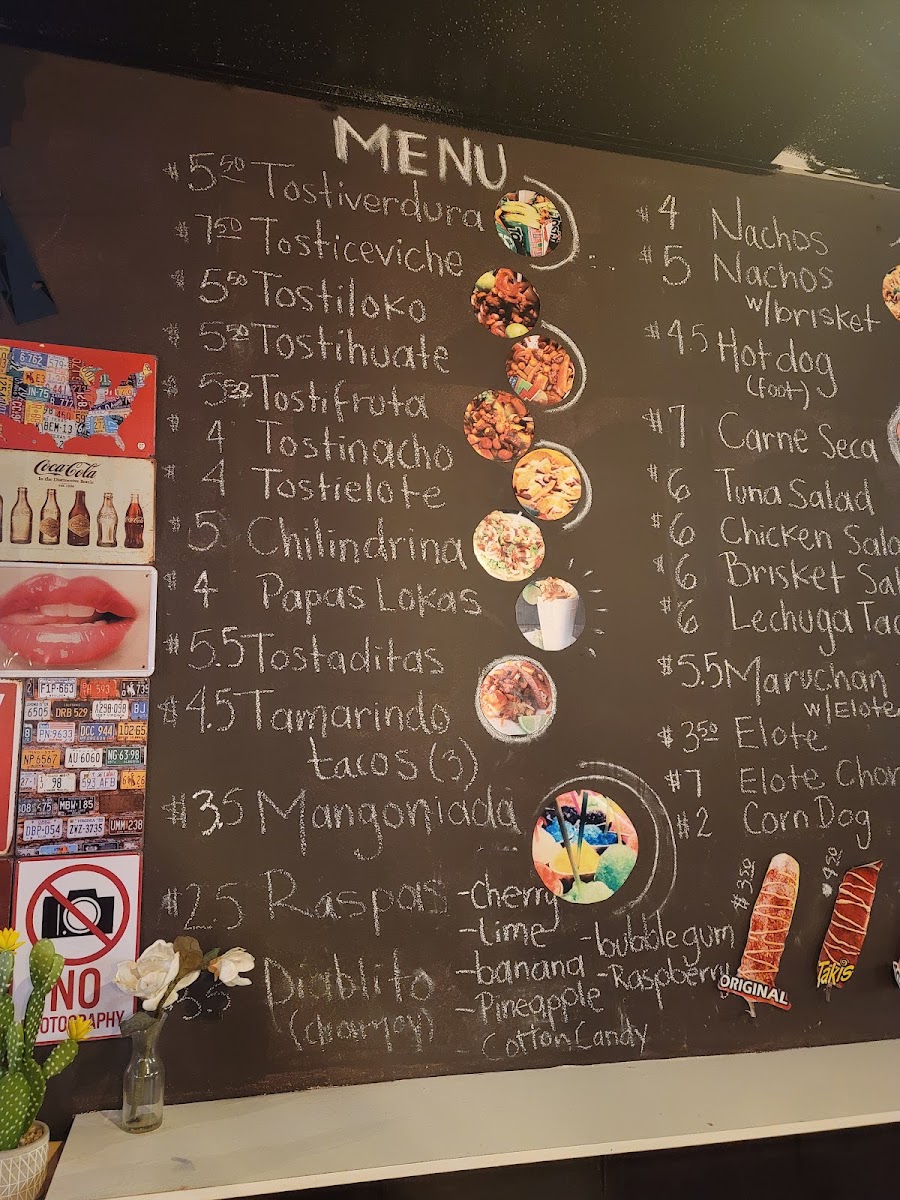 MENU
$5.50 Tostiverdura
$7.50 Tosticeviche
$5.50 Tostiloko
$5.50 Tostihuate
$5.50 Tostifruta
$ 4 Tostinacho
$ 4 Tostielote
$ 5 Chilindrina
$ 4 Papas Lokas
$5.5 Tostaditas
$4.5 Tamarindo
tacos (3)
$3.5 Mangoniada
$2.5 Raspas
-cherry
-Lime
-banana
-Pineapple
Cotton Candy
-bubblegum
-Raspberry
Diablito
(chamoy)
$4 Nachos
$5 Nachos
w/brisket
$4.5 Hotdog
(foot)
$7 Carne Seca
$6 Tuna Salad
$6 Chicken
$6 Brisket
$6 Lechuga
$5.5 Maruchan
w/Elote
$3.50 Elote
$7 Elote
$2 Corn Dog
$3.50
ORIGINAL
$4.50
Takis
Coca-Cola
NO